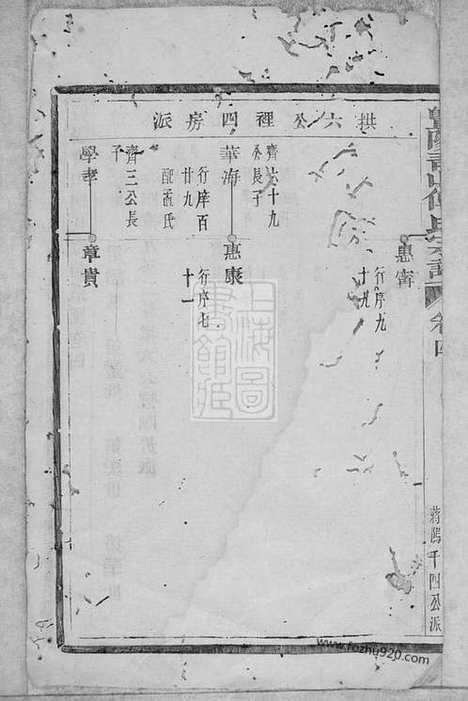 卷四
千四公派
拱六公裡四房派
惠寗
行序九
十九
齊六十九
公長子
華海
惠康
行序百
廿九
配孟氏
行序七
十一
齊三公長
子
學孝
章貴
上海圖
書館藏
www.fozhu920.com